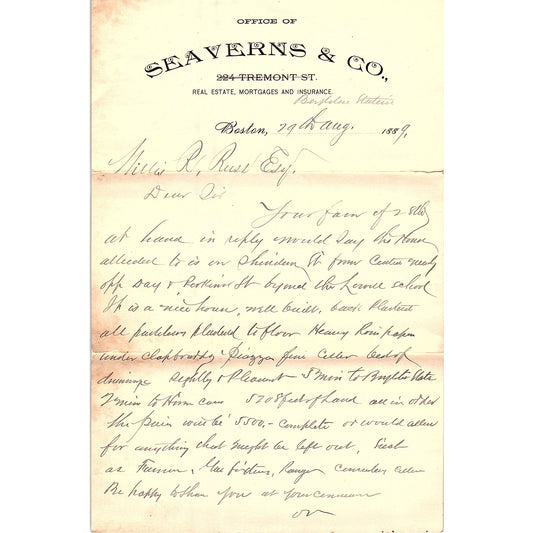 OFFICE OF
SEAVERNS & CO.,
224 TREMONT ST.
REAL ESTATE, MORTGAGES AND INSURANCE.
Station
Boston, 29th Aug. 1889,
Willis R. Russ Esq.
Dear Sir
Your favor of 28th
at hand in reply would say the House
alluded to is on Sheridan St from Centre nearly
opp Day & Perkins St beyond the Lowell school
It is a nice house, well built, back plastered
all plastered to floor Heavy Rosin paper
under clapboards Piazza fine Cellar best of
drainage Sightly & Pleasant 8 min to Station
2 min to Horse cars 5208 feet of land all in order
the price will be 5500,- complete or would allow
for anything that might be left out, Such
as Furnace, Gas fixtures, Range
Be happy to show you at your convenience